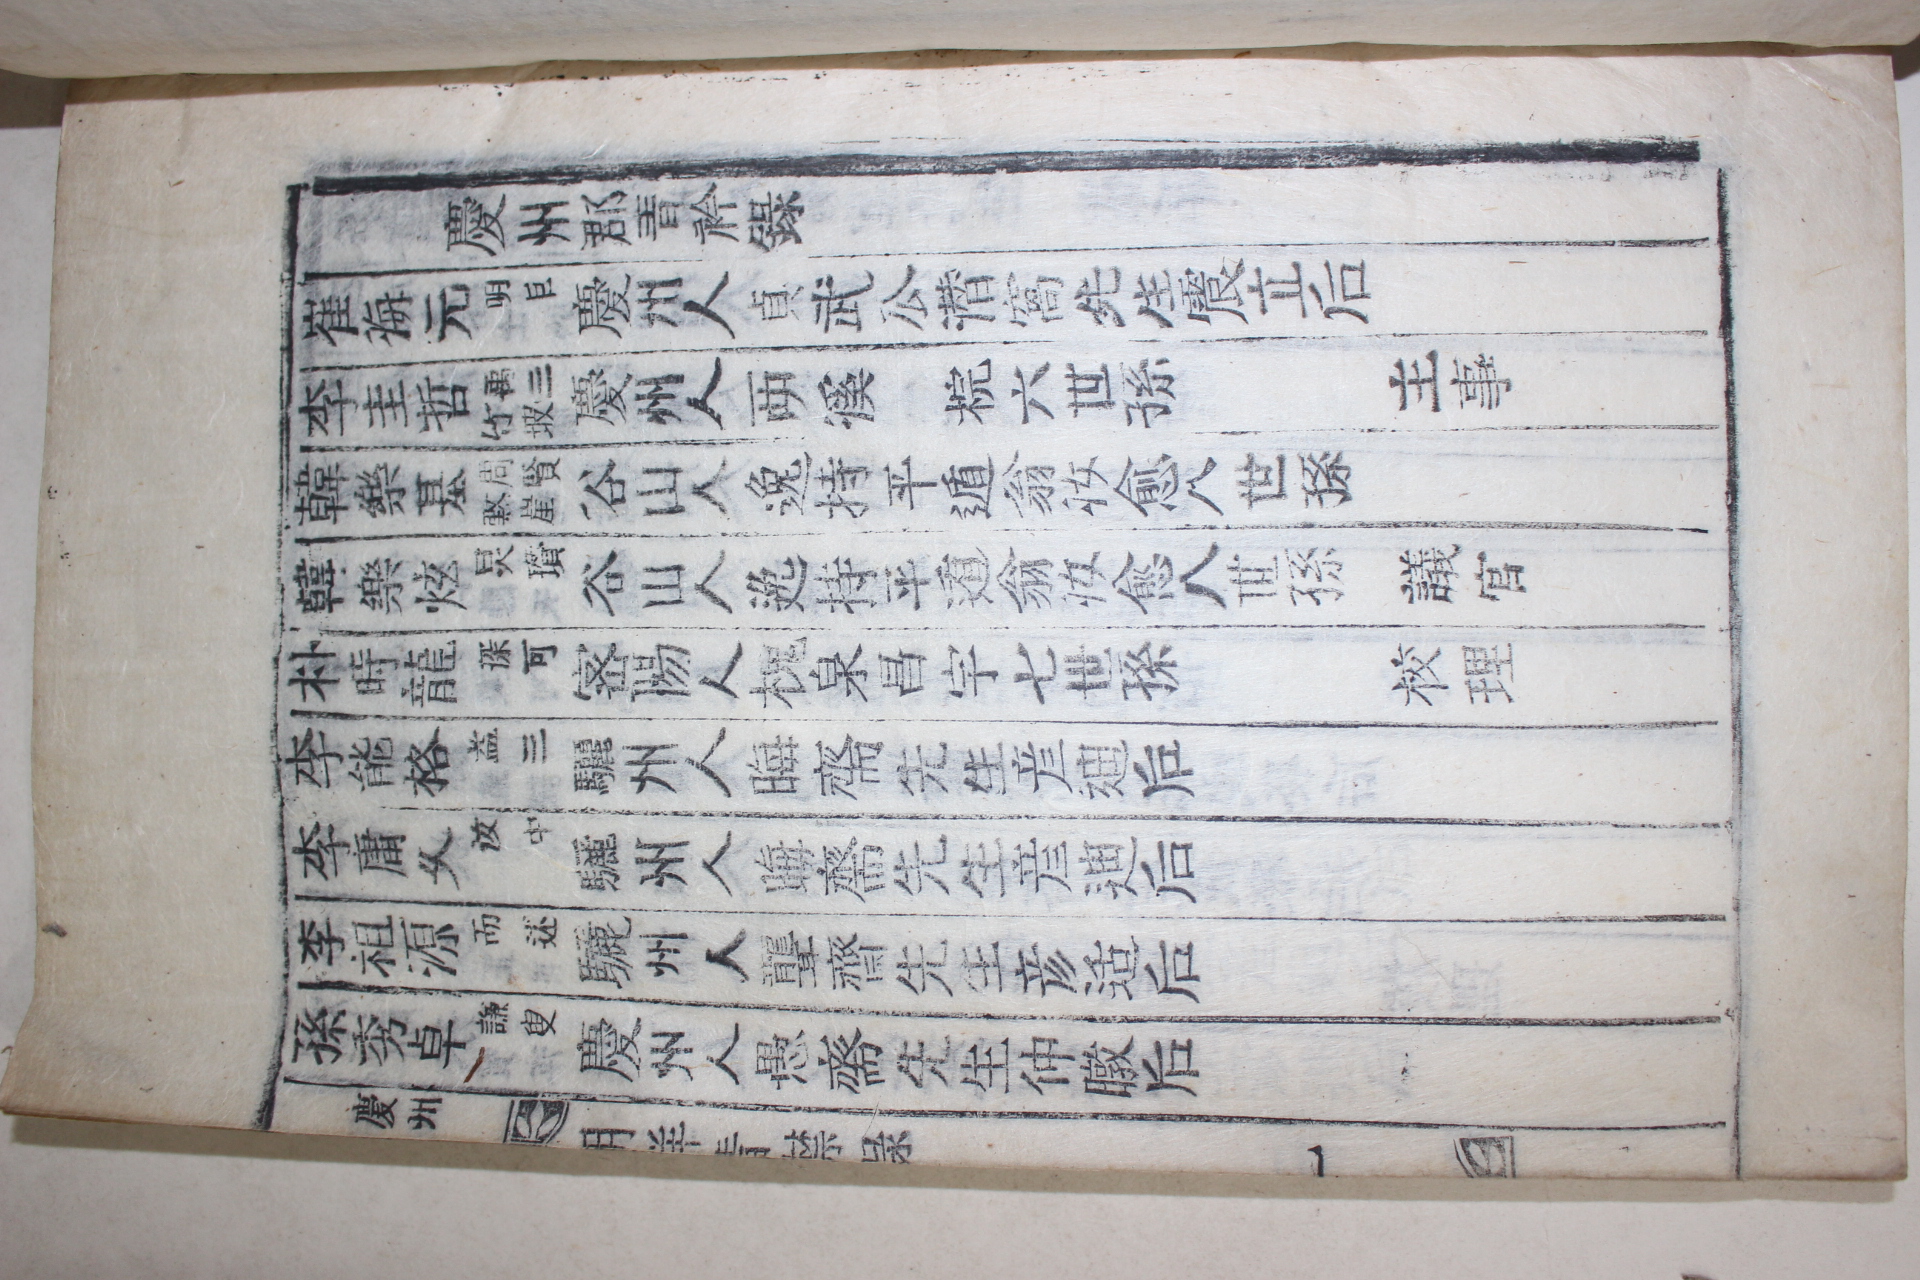 慶州郡青衿錄
崔海元 明巨 慶州人貞武公潛窩先生震立后
李圭哲 禹三竹塅 慶州人西溪 梡六世孫 主事
韓樂基 周賢憨崖 谷山人逸持平遁翁汝愈八世孫
韓樂炫 昊瓚 谷山人逸持平遁翁汝愈八世孫 議官
朴時龍 採可 密陽人槐泉昌宇七世孫 校理
李能格 益三 驪州人晦齋先生彦迪后
李庸久 汝中 驪州人晦齋先生彦迪后
李祖源 而述 驪州人聾齋先生彦适后
孫秀卓 謙叟 慶州人愚齋先生仲暾后
慶州
一